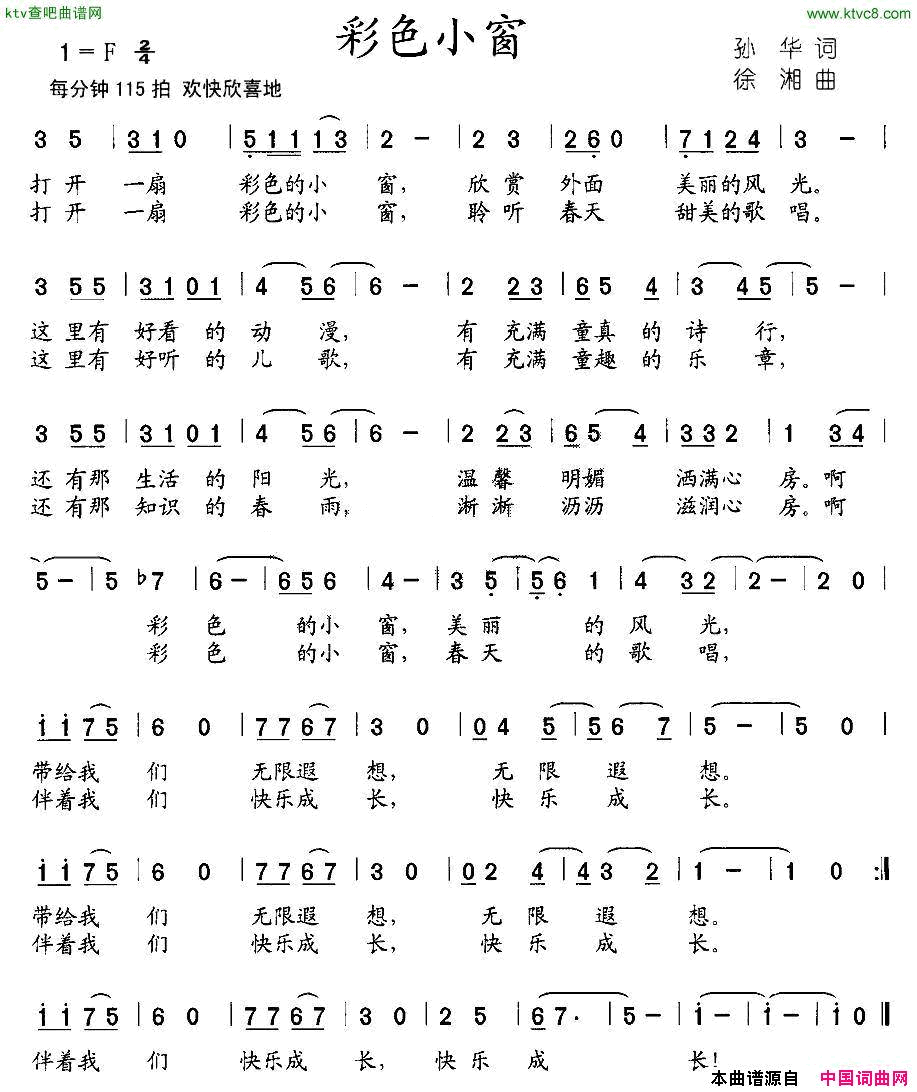 ktv查吧曲谱网
www.ktvc8.com
彩色小窗
1=F 2/4
孙华词
徐湘曲
每分钟115拍 欢快欣喜地
3 5 | 3 1 0 | 5 1 1 1 3 | 2 - | 2 3 | 2 6 0 | 7 1 2 4 | 3 - |
打开 一扇 彩色的小 窗, 欣赏 外面 美丽的风 光。
打开 一扇 彩色的小 窗, 聆听 春天 甜美的歌 唱。
3 5 5 | 3 1 0 1 | 4 5 6 | 6 - | 2 2 3 | 6 5 4 | 3 4 5 | 5 - |
这里有 好看 的 动 漫, 有 充满 童真 的 诗 行,
这里有 好听 的 儿 歌, 有 充满 童趣 的 乐 章,
3 5 5 | 3 1 0 1 | 4 5 6 | 6 - | 2 2 3 | 6 5 4 | 3 3 3 2 | 1 3 4 |
还有那 生活 的 阳 光, 温馨 明媚 洒满心 房。啊
还有那 知识 的 春 雨, 淅淅 沥沥 滋润心 房。啊
5 - | 5 ♭7 | 6 - | 6 5 6 | 4 - | 3 5 | 5 6 1 | 4 3 2 | 2 - | 2 0 |
彩 色 的小 窗, 美 丽 的 风 光,
彩 色 的小 窗, 春 天 的 歌 唱,
i i 7 5 | 6 0 | 7 7 6 7 | 3 0 | 0 4 5 | 5 6 7 | 5 - | 5 0 |
带给我 们 无限遐 想, 无 限 遐 想。
伴着我 们 快乐成 长, 快 乐 成 长。
i i 7 5 | 6 0 | 7 7 6 7 | 3 0 | 0 2 4 | 4 3 2 | 1 - | 1 0 :‖
带给我 们 无限遐 想, 无 限 遐 想。
伴着我 们 快乐成 长, 快 乐 成 长。
i i 7 5 | 6 0 | 7 7 6 7 | 3 0 | 2 5 | 6 7. | 5 - | i - | i - | i 0 ‖
伴着我 们 快乐成 长, 快 乐 成 长!
本曲谱源自 中国词曲网